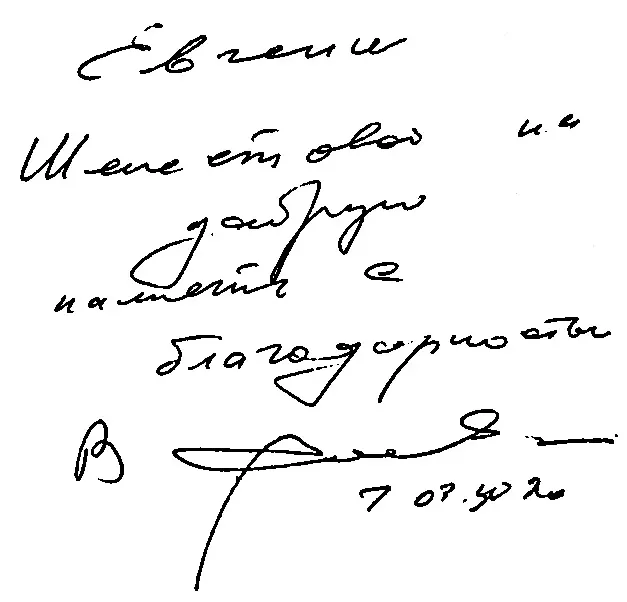 Евгении
Шелестовой на
добрую
память с
благодарностью
В